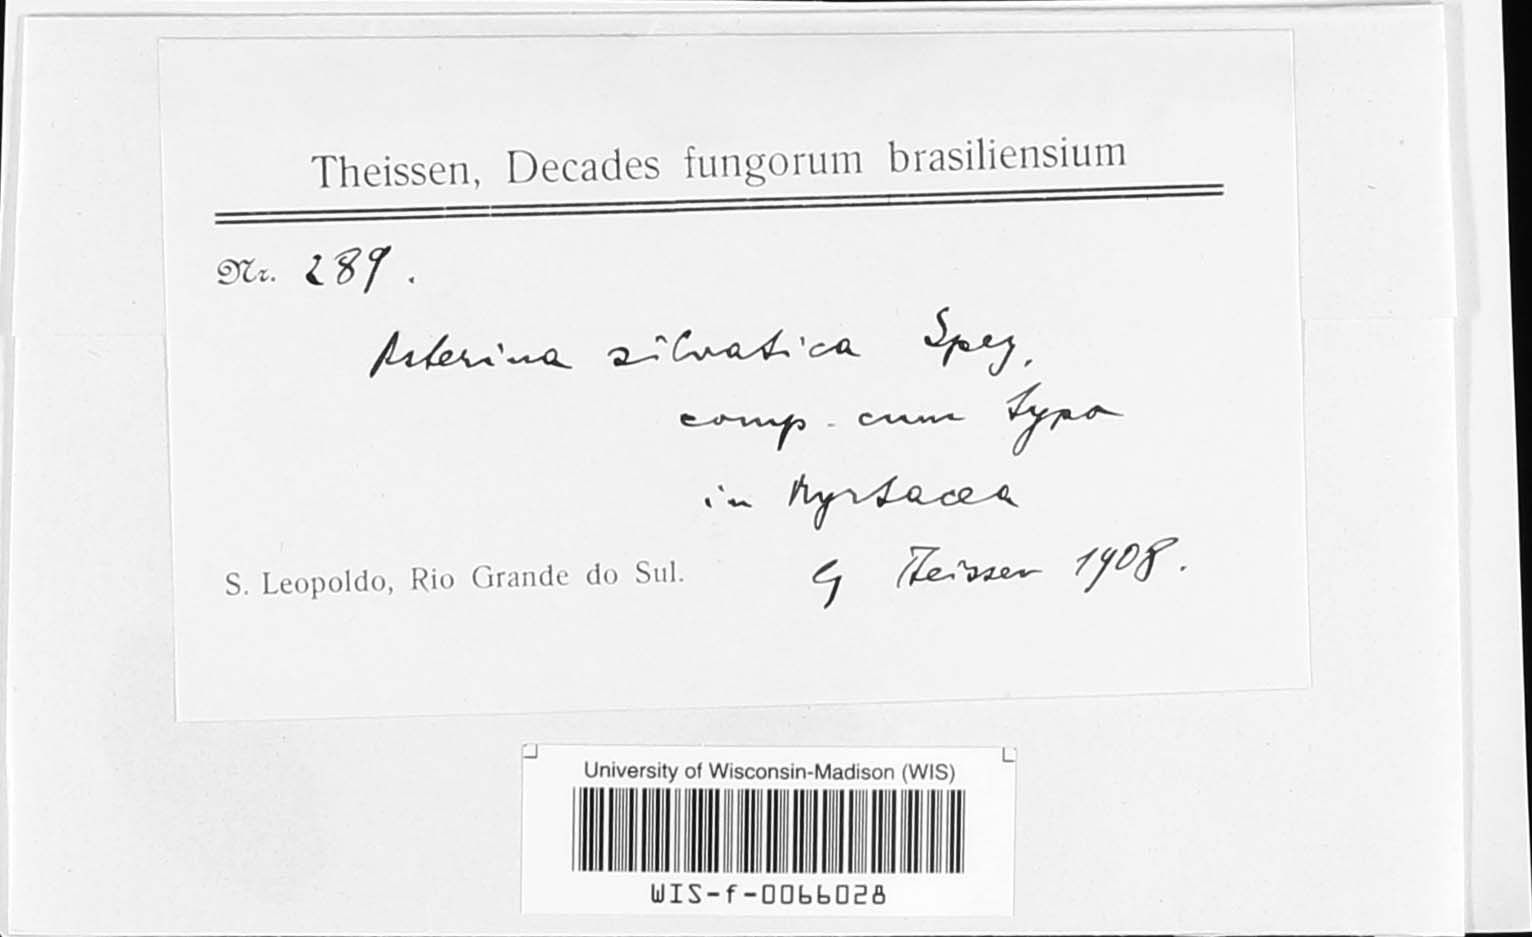 Theissen, Decades fungorum brasiliensium
Nr. 289.
Asterina silvatica Speg.
comp. cum typo
in Myrtacea
S. Leopoldo, Rio Grande do Sul.
G Theissen 1908.
University of Wisconsin-Madison (WIS)
WIS-f-0066028